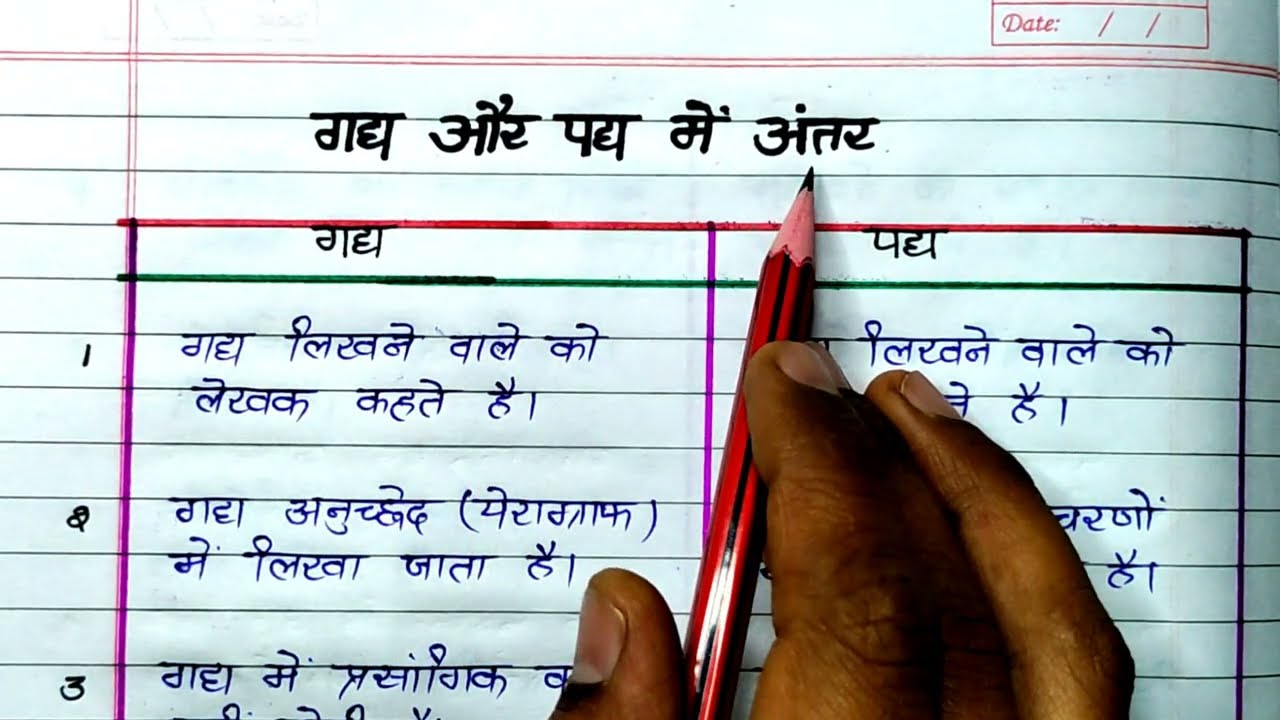 Date: / /
गद्य और पद्य में अंतर
गद्य पद्य
1 गद्य लिखने वाले को
लेखक कहते है।
लिखने वाले को
है।
२ गद्य अनुच्छेद (पेराग्राफ)
में लिखा जाता है।
चरणों
है।
3 गद्य में प्रसांगिक